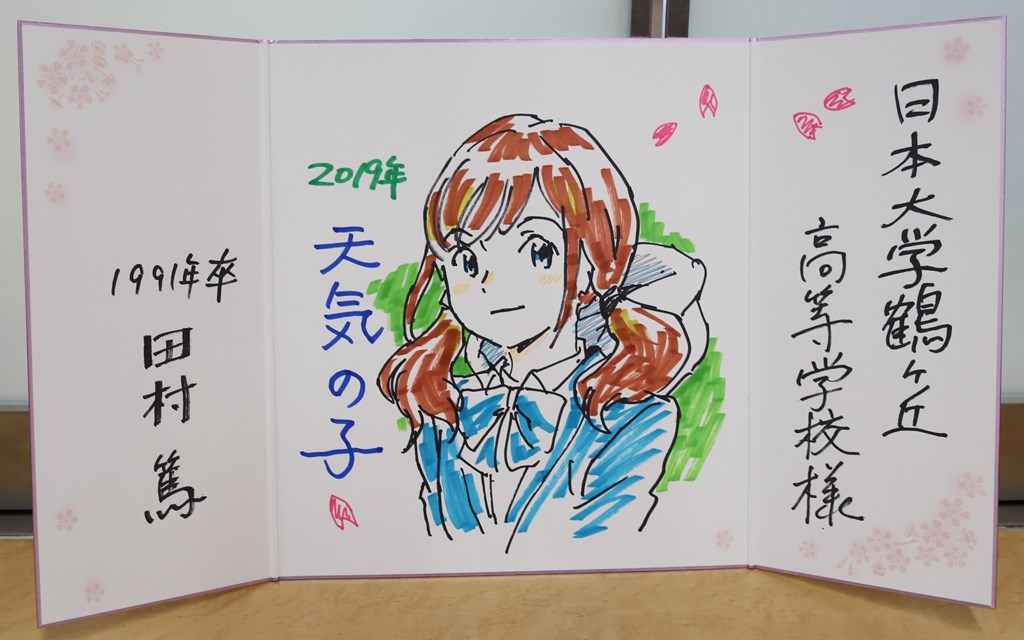 日本大学鶴ヶ丘
高等学校様
2019年
天気の子
1991年卒
田村篤